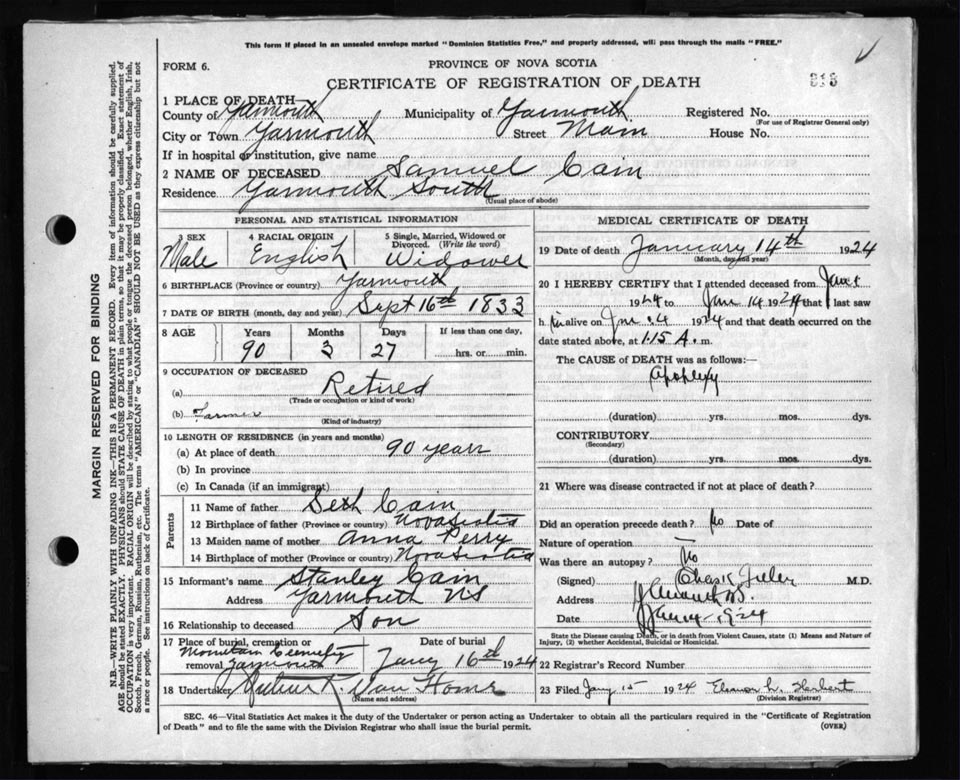 This form if placed in an unsealed envelope marked "Dominion Statistics Free," and properly addressed, will pass through the mails "FREE."
FORM 6.
PROVINCE OF NOVA SCOTIA
CERTIFICATE OF REGISTRATION OF DEATH
1 PLACE OF DEATH
County of Yarmouth Municipality of Yarmouth Registered No.
(For use of Registrar General only)
City or Town Yarmouth Street Main House No.
If in hospital or institution, give name
2 NAME OF DECEASED Samuel Cain
Residence Yarmouth South
(Usual place of abode)
PERSONAL AND STATISTICAL INFORMATION
3 SEX 4 RACIAL ORIGIN 5 Single, Married, Widowed or
Divorced. (Write the word)
Male English Widower
6 BIRTHPLACE (Province or country) Yarmouth
7 DATE OF BIRTH (month, day and year) Sept 16th 1833
8 AGE Years Months Days If less than one day,
90 3 27 hrs. or min.
9 OCCUPATION OF DECEASED
(a) Retired
(Trade or occupation or kind of work)
(b) Farmer
(Kind of industry)
10 LENGTH OF RESIDENCE (in years and months)
(a) At place of death 90 years
(b) In province
(c) In Canada (if an immigrant)
Parents
11 Name of father Seth Cain
12 Birthplace of father (Province or country) Nova Scotia
13 Maiden name of mother Anna Perry
14 Birthplace of mother (Province or country) Nova Scotia
15 Informant's name Stanley Cain
Address Yarmouth NS
16 Relationship to deceased Son
17 Place of burial, cremation or Date of burial
Mountain Cemetery
removal Yarmouth Jany 16th 1924
18 Undertaker Van Horne
(Name and address)
MEDICAL CERTIFICATE OF DEATH
19 Date of death January 14th 1924
(Month, day and year)
20 I HEREBY CERTIFY that I attended deceased from
1924 to Jan 14 1924 that I last saw
h im alive on 1924 and that death occurred on the
date stated above, at 1.15 A. m.
The CAUSE of DEATH was as follows:—
Apoplexy
(duration) yrs. mos. dys.
CONTRIBUTORY
(Secondary)
(duration) yrs. mos. dys.
21 Where was disease contracted if not at place of death?
Did an operation precede death? No Date of
Nature of operation
Was there an autopsy? No
(Signed) Chas M.D.
Address
Date 1924
State the Disease causing Death, or in death from Violent Causes, state (1) Means and Nature of
Injury, (2) whether Accidental, Suicidal or Homicidal.
22 Registrar's Record Number
23 Filed Jany 15 1924 Herbert
(Division Registrar)
SEC. 46—Vital Statistics Act makes it the duty of the Undertaker or person acting as Undertaker to obtain all the particulars required in the "Certificate of Registration
of Death" and to file the same with the Division Registrar who shall issue the burial permit. (OVER)
MARGIN RESERVED FOR BINDING
N.B.—WRITE PLAINLY WITH UNFADING INK—THIS IS A PERMANENT RECORD. Every item of information should be carefully supplied.
AGE should be stated EXACTLY. PHYSICIANS should STATE CAUSE OF DEATH in plain terms, so that it may be properly classified. Exact statement of
OCCUPATION is very important. RACIAL ORIGIN will be described by stating to what people or tongue the deceased person belonged, whether English, Irish,
Scotch, French, German, Russian, Ruthenian, etc. The terms "AMERICAN" or "CANADIAN" SHOULD NOT BE USED as they express citizenship but not
a race or people. See instructions on back of Certificate.